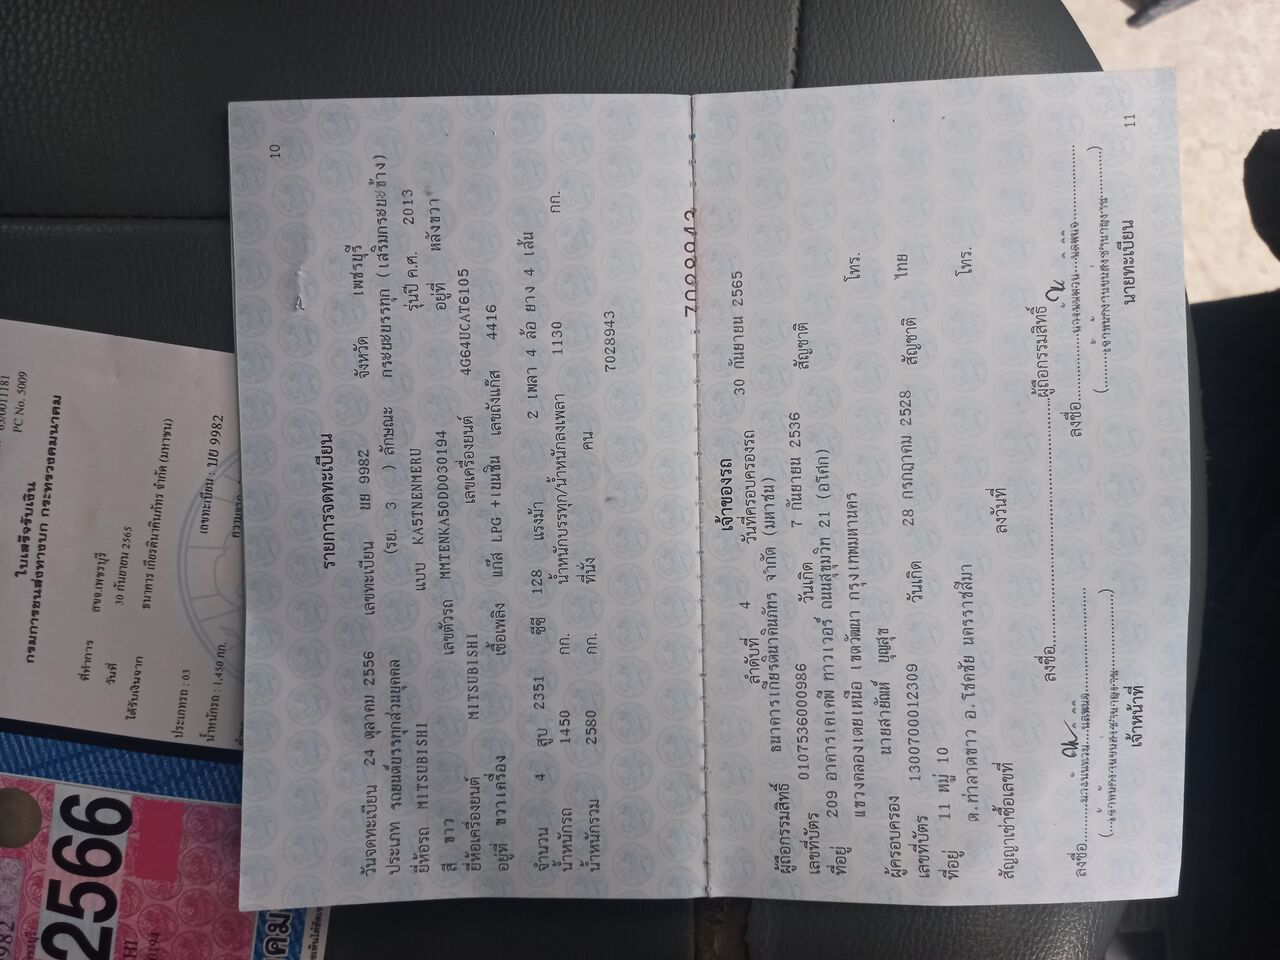 10
รายการจดทะเบียน
วันจดทะเบียน 24 ตุลาคม 2556 เลขทะเบียน บย 9982 จังหวัด เพชรบุรี
ประเภท รถยนต์บรรทุกส่วนบุคคล (รย. 3 ) ลักษณะ กระบะบรรทุก (เสริมกระบะข้าง)
ยี่ห้อรถ MITSUBISHI แบบ KA5TNENMERU รุ่นปี ค.ศ. 2013
สี ขาว เลขตัวรถ MMTENKA50DD030194 อยู่ที่ หลังขวา
ยี่ห้อเครื่องยนต์ MITSUBISHI เลขเครื่องยนต์ 4G64UCAT6105
อยู่ที่ ขวาเครื่อง เชื้อเพลิง แก๊ส LPG +เบนซิน เลขถังแก๊ส 4416
จำนวน 4 สูบ 2351 ซีซี 128 แรงม้า 2 เพลา 4 ล้อ ยาง 4 เส้น
น้ำหนักรถ 1450 กก. น้ำหนักบรรทุก/น้ำหนักลงเพลา 1130 กก.
น้ำหนักรวม 2580 กก. ที่นั่ง คน
7028943
เจ้าของรถ
ลำดับที่ 4 วันที่ครอบครองรถ 30 กันยายน 2565
ผู้ถือกรรมสิทธิ์ ธนาคารเกียรตินาคินภัทร จำกัด (มหาชน)
เลขที่บัตร 0107536000986 วันเกิด 7 กันยายน 2536 สัญชาติ
ที่อยู่ 209 อาคารเคเคพี ทาวเวอร์ ถนนสุขุมวิท 21 (อโศก)
แขวงคลองเตยเหนือ เขตวัฒนา กรุงเทพมหานคร โทร.
ผู้ครอบครอง นายสายัณห์ บุญสุข
เลขที่บัตร 1300700012309 วันเกิด 28 กรกฎาคม 2528 สัญชาติ ไทย
ที่อยู่ 11 หมู่ 10
ต.ท่าลาดขาว อ.โชคชัย นครราชสีมา โทร.
สัญญาเช่าซื้อเลขที่ ลงวันที่
ลงชื่อ ผู้ถือกรรมสิทธิ์
ลงชื่อ ลงชื่อ
เจ้าหน้าที่ นายทะเบียน
11
PC No. 5009
ใบเสร็จรับเงิน
กรมการขนส่งทางบก กระทรวงคมนาคม
ที่ทำการ สขจ.เพชรบุรี
วันที่ 30 กันยายน 2565
ได้รับเงินจาก ธนาคาร เกียรตินาคินภัทร จำกัด (มหาชน)
ประเภทรถ : 03 เลขทะเบียน : บย 9982
น้ำหนักรถ : 1,450 กก.
2566